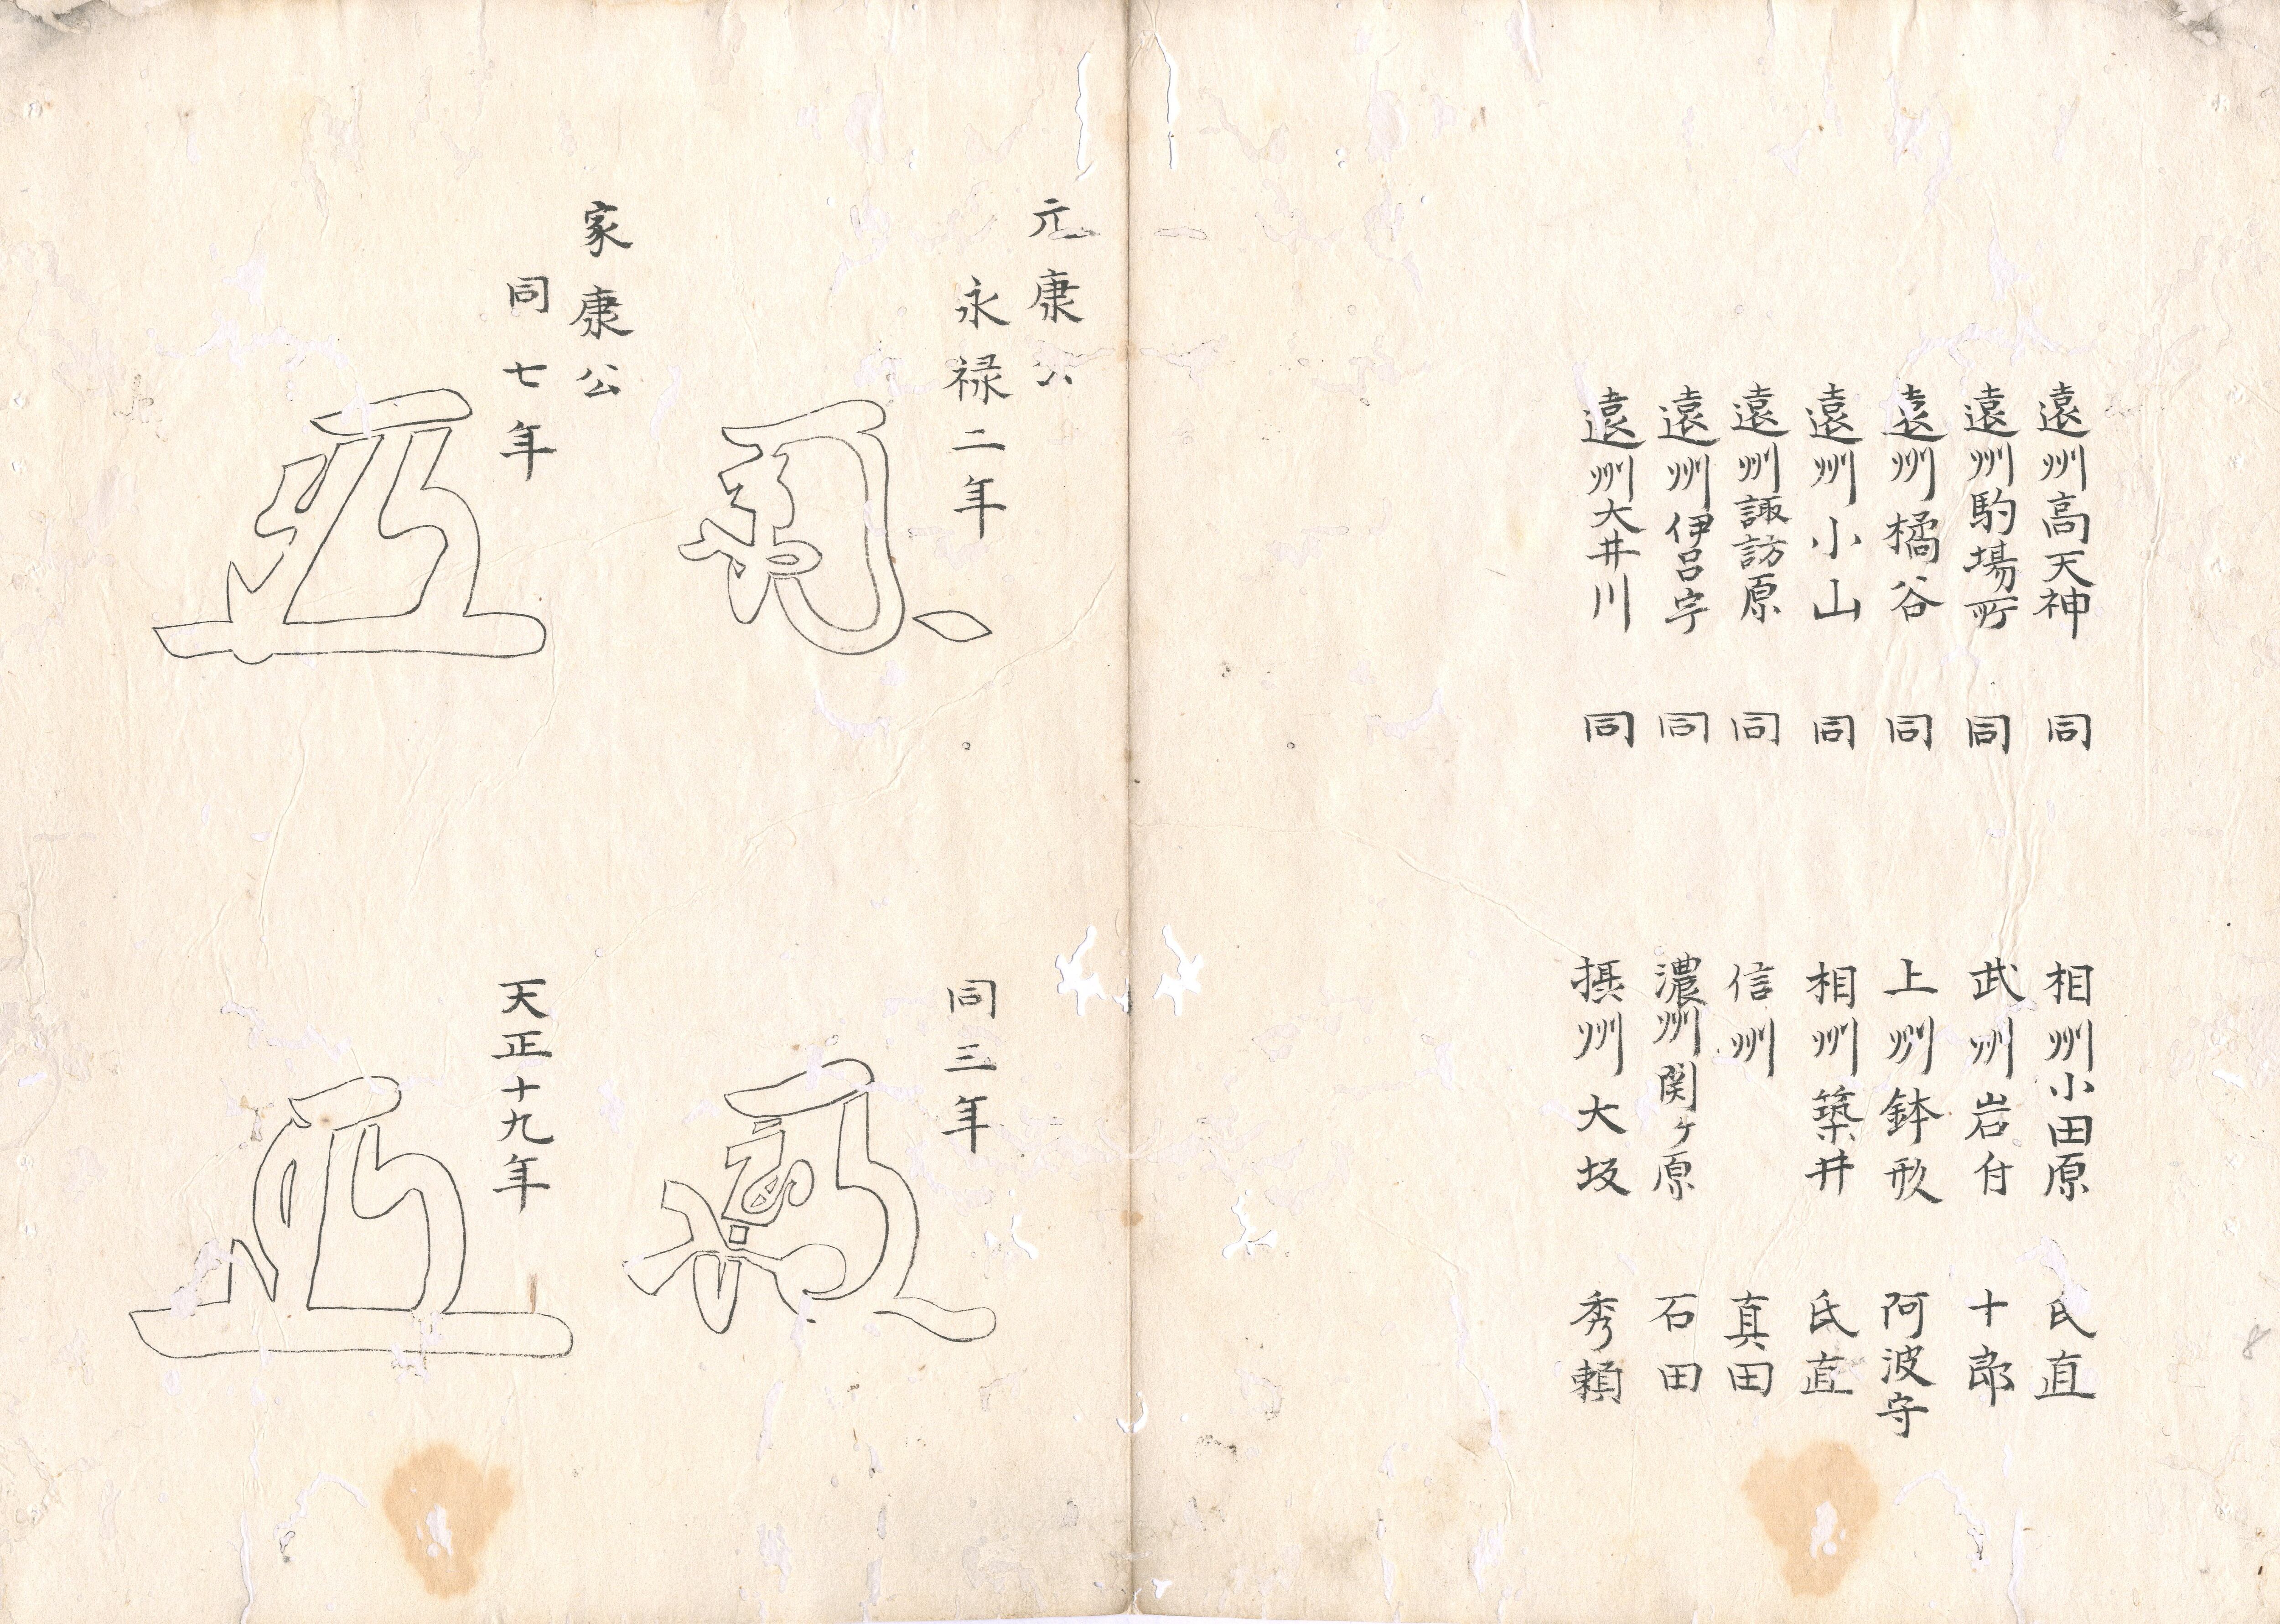 遠州高天神 同
遠州駒場野 同
遠州橘谷 同
遠州小山 同
遠州諏訪原 同
遠州伊呂宇 同
遠州大井川 同
相州小田原 氏直
武州岩付 十郎
上州鉢形 阿波守
相州築井 氏直
信州 真田
濃州関ヶ原 石田
摂州大坂 秀頼
元康公
永禄二年
同三年
家康公
同七年
天正十九年